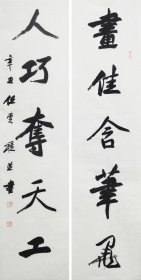 畫佳含筆
人巧奪天工
辛丑任雲書